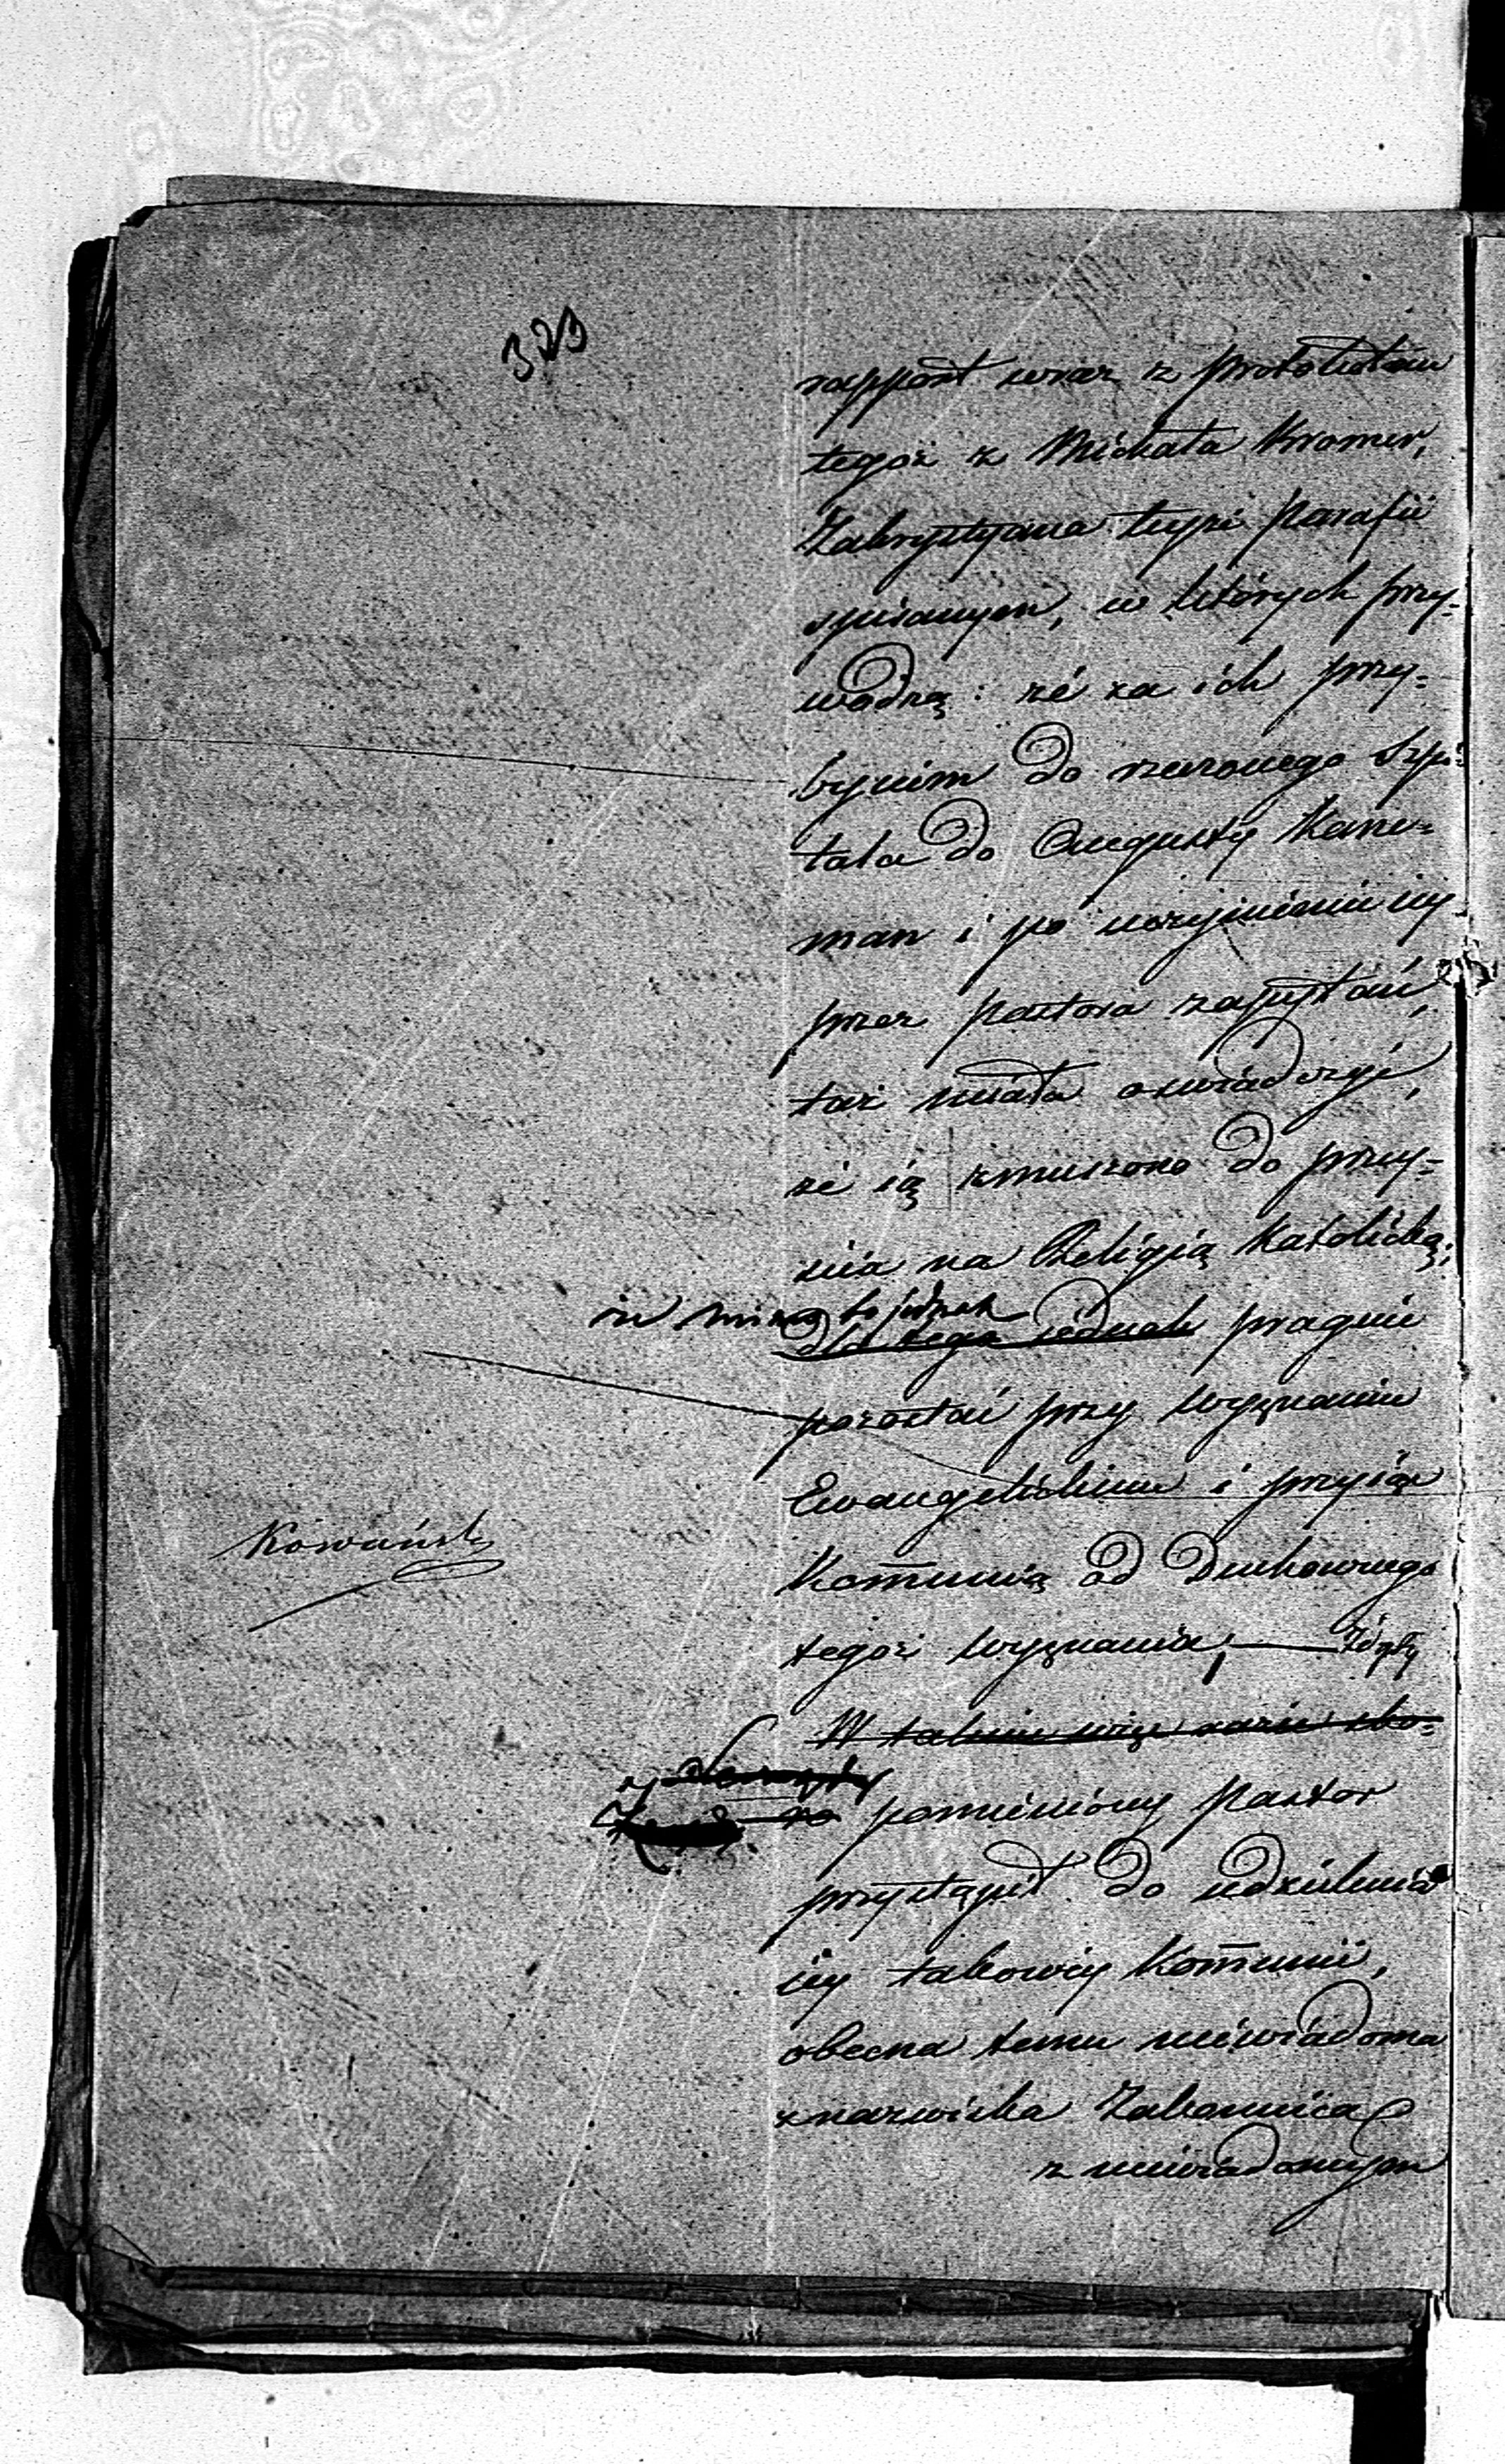 323
rapport wraz z protokułem
tegoż z Michała Kromer,
Zakrystyana teyże Parafii
spisanym, w których przy-
wodzą: że za ich przy-
byciem do rzeczonego Szpi-
tala do Augusty Kane-
man i po uczynieniu iéy
przez Pastora zapytań,
taż miała oświadczyć,
że ią zmuszono do przey-
ścia na Religią Katolicką;
że mimo to jednak
dla tego jednak pragnie
pozostać przy Wyznaniu
Ewangelickim i przyiąć
Kom̄unią od Duchownego
tegoż Wyznania; — Gdy
W takim więc razie sko-
pomieniony Pastor
przystąpił do udzielenia
iéy takowéy Kom̄unii,
obecna temu niewiadoma
z nazwiska Zakonnica
z niewiadomym